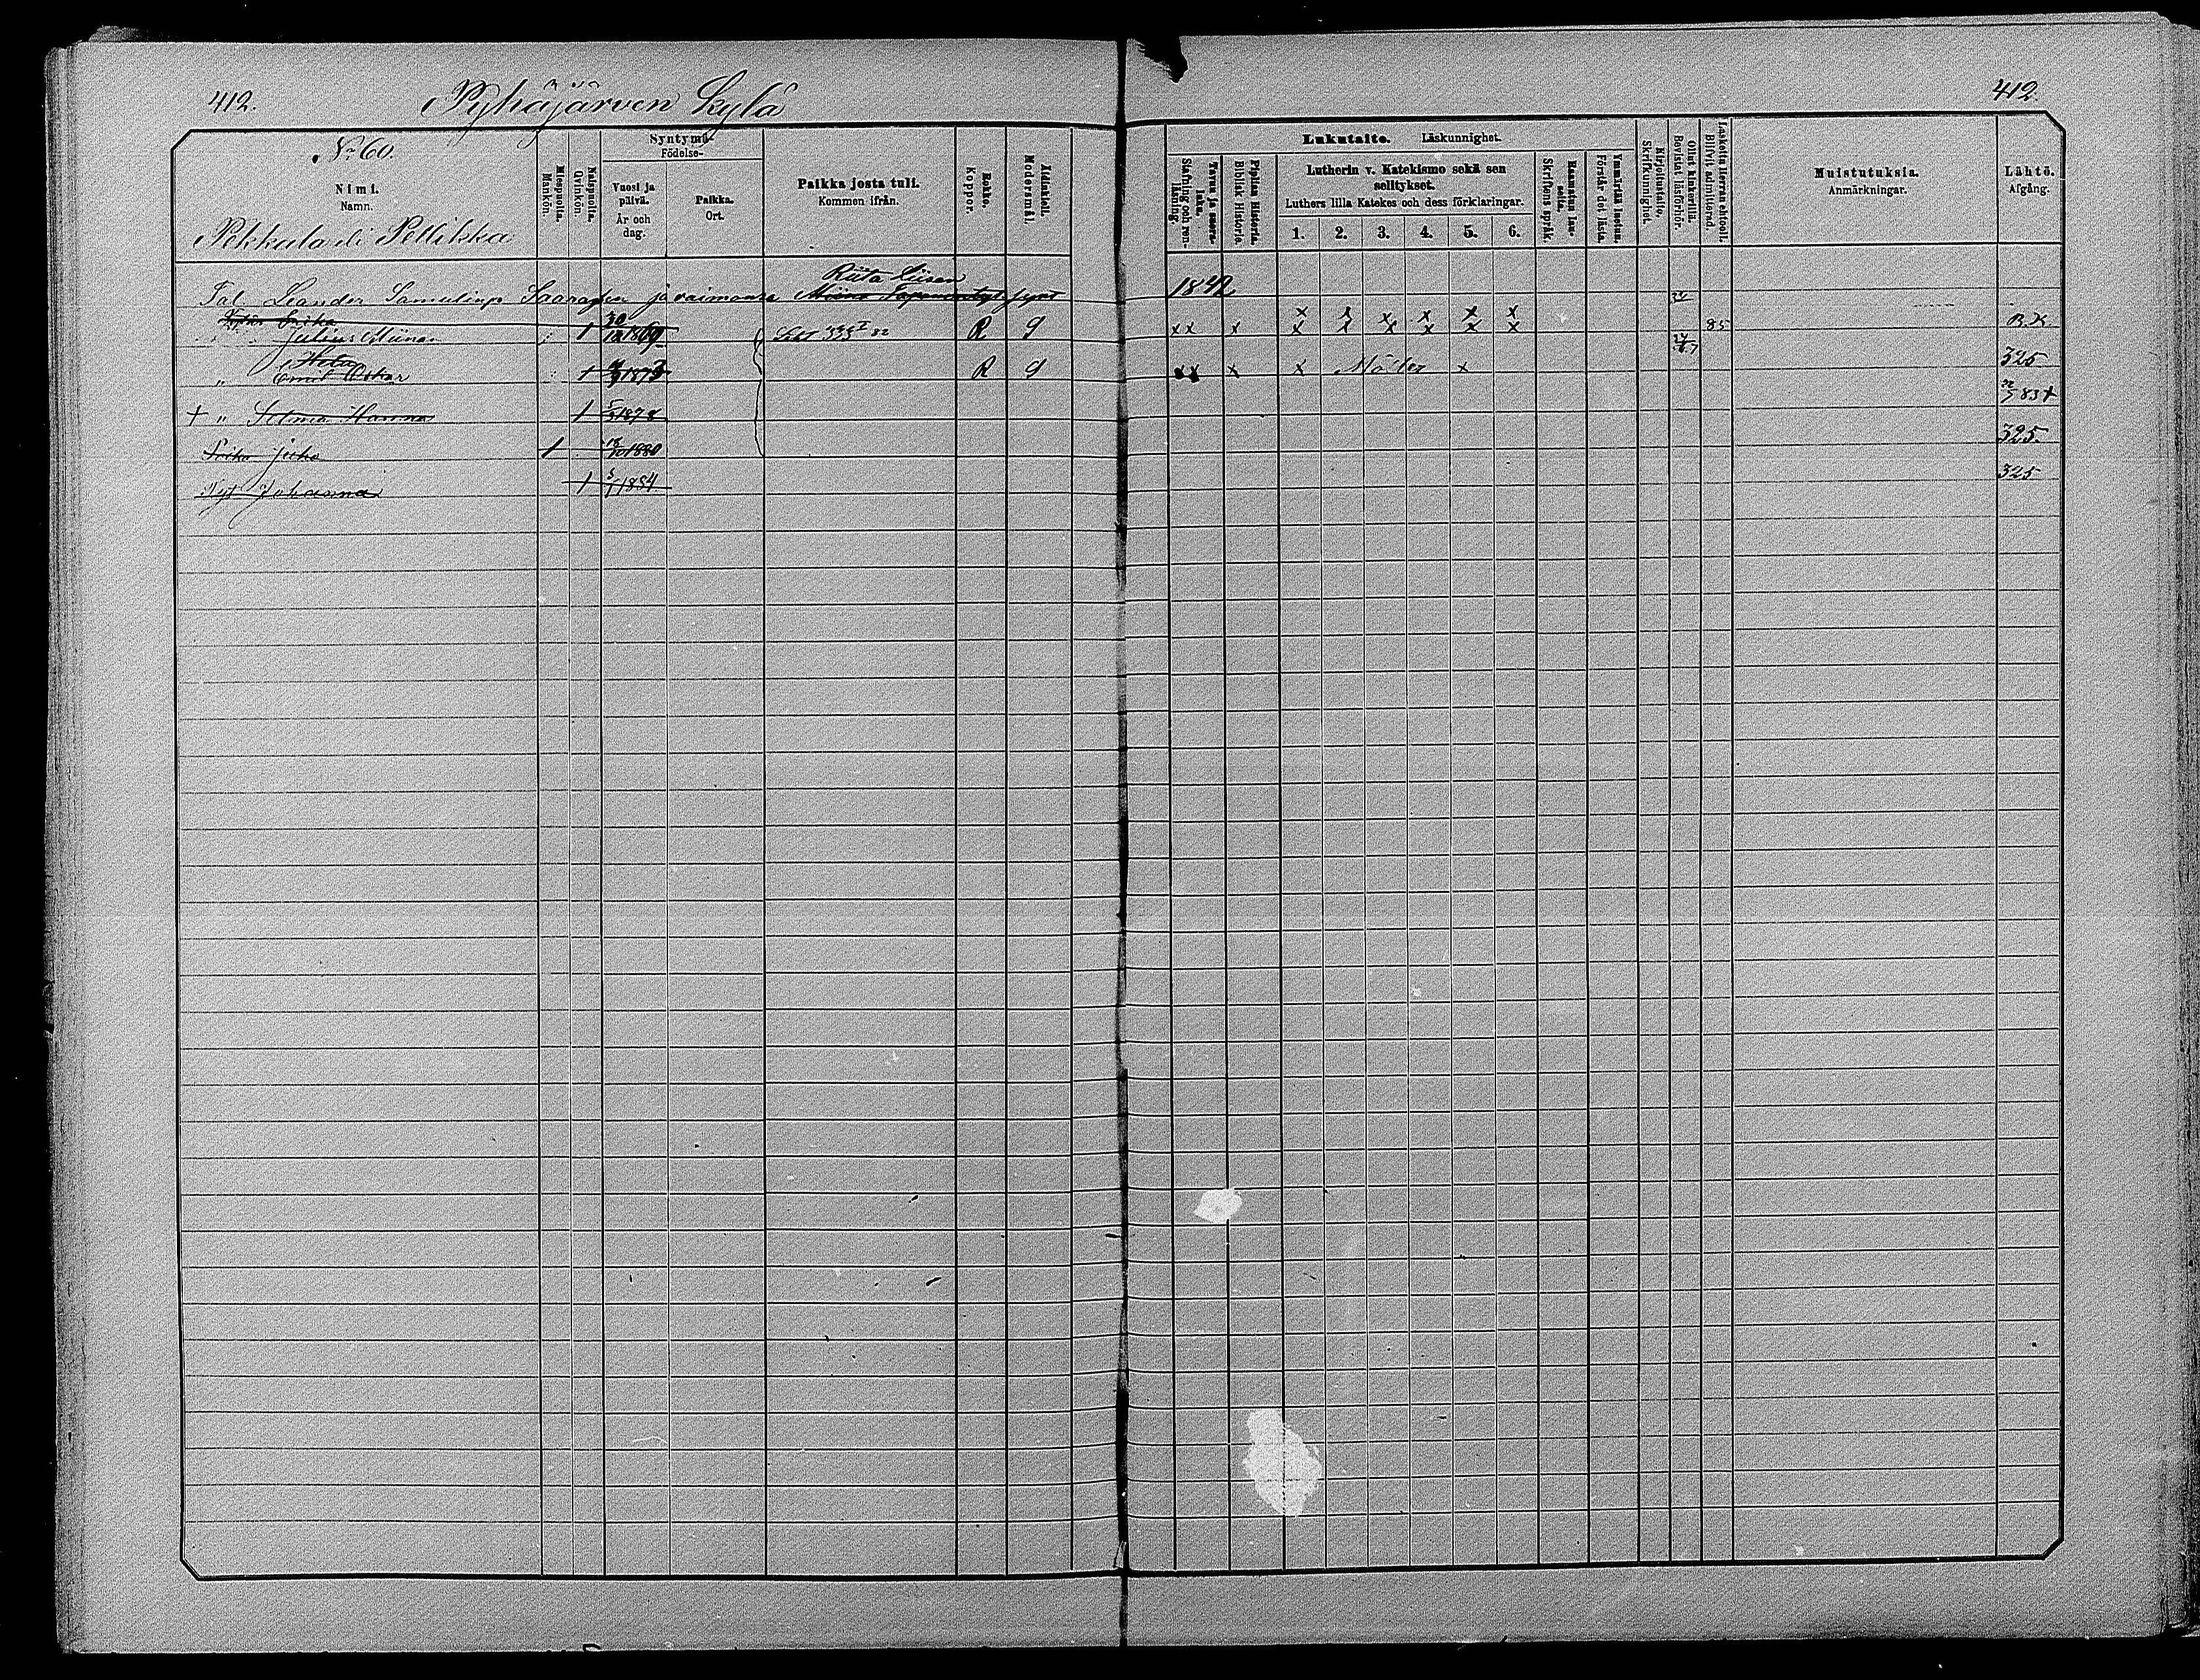 412.
Pyhäjärven kylä
412.
No 60.
Nimi.
Namn.
Pekkala eli Pellikka
Miespuolia.
Mankön.
Naispuolia.
Qvinkön.
Syntymä-
Födelse-
Vuosi ja
päivä.
År och
dag.
Paikka.
Ort.
Paikka josta tuli.
Kommen ifrån.
Rokko.
Koppor.
Äidinkieli.
Modersmål.
Lukutaito. Läskunnighet.
Tavuu ja suora-
luku.
Stafning och ren-
läsning.
Piplian Historia.
Biblisk Historie.
Lutherin v. Katekismo sekä sen
selitykset.
Luthers lilla Katekes och dess förklaringar.
1. 2. 3. 4. 5. 6.
Raamatun lau-
seita.
Skriftens språk.
Ymmärtää luetun.
Förstår det lästa.
Kirjoitustaito.
Skrifkunnighet.
Ollut kinkerillä.
Bevistat läsförhör.
Laskettu Herran ehtool.
Blifvit admitterad.
Muistutuksia.
Anmärkningar.
Lähtö.
Afgång.
Riita Liisan
Tal. Leander Samulinp. Saarasen ja vaimonsa Miina Tapanintyt. synt 1842
Erika
Julius Miina 1 30/12 1869 335 I 82 R 9 x x x x x x x x x 85 B.K.
Hilta
Emil Oskar 1 1873 R 9 x x x x x 325
+ " Selma Hanna 1 1878 83 +
Poika Juho 1 18/10 1880 325.
Tyt Johanna 1 5/1 1884 325